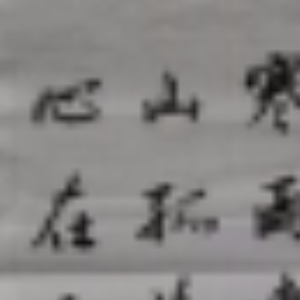 寒雨
山孤
心在